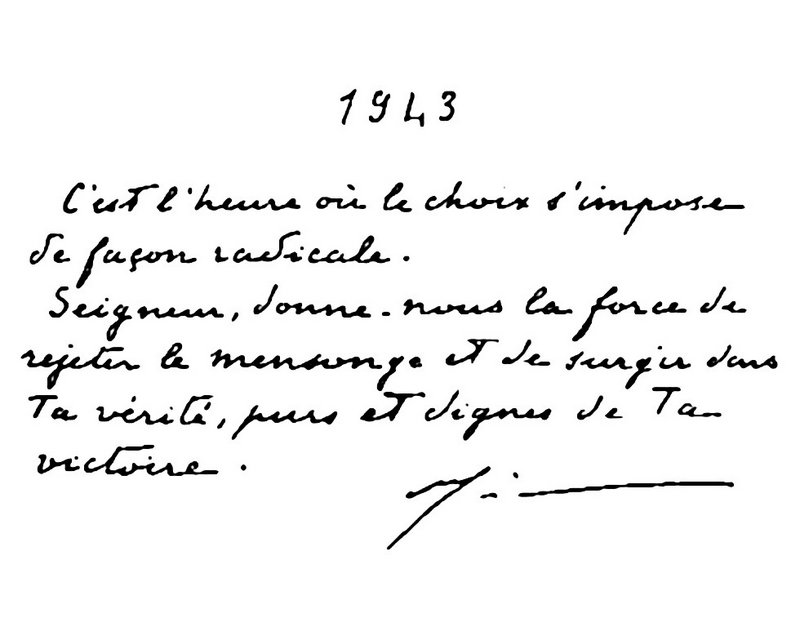 1943
C'est l'heure où le choix s'impose
de façon radicale.
Seigneur, donne-nous la force de
rejeter le mensonge et de surgir dans
Ta vérité, purs et dignes de Ta
victoire.